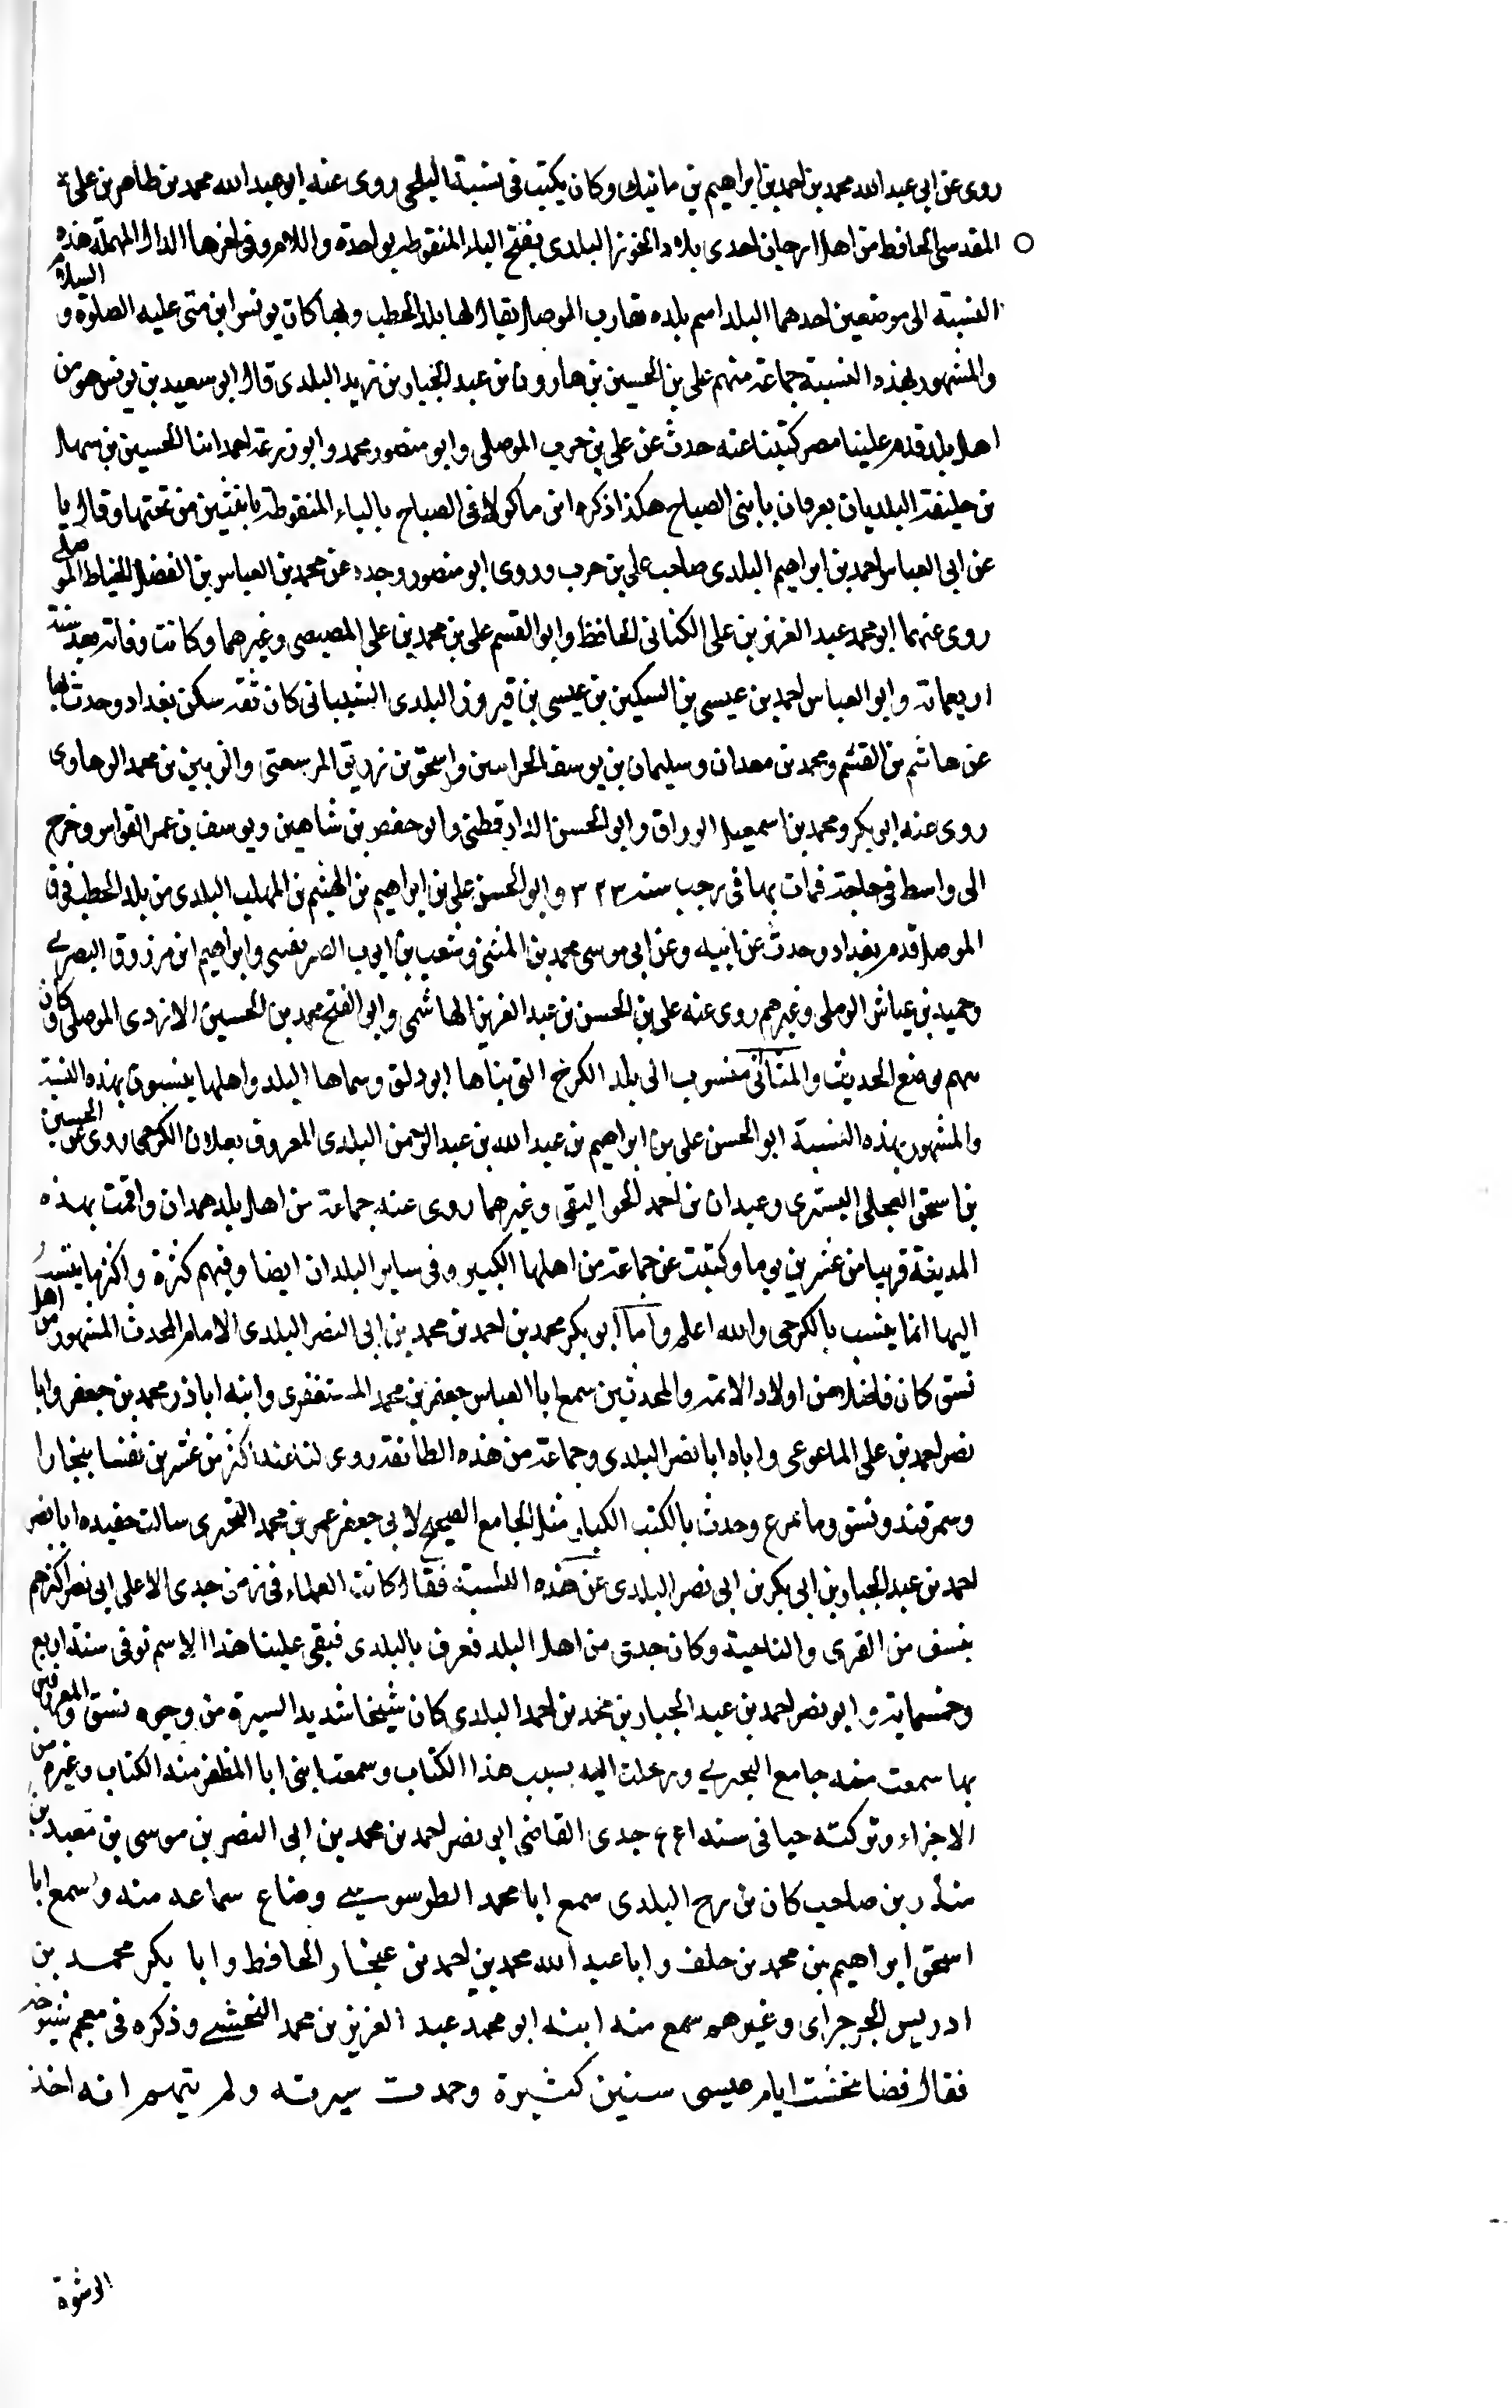 روى عن ابى عبد الله محمد بن احمد بن ابراهيم بن مانيك وكان يكتب فى نسبة البلجى روى عنه ابو عبد الله محمد بن طاهر بن على
المقدسى الحافظ من اهل ارجان احدى بلاد الخوز البلدى بفتح الباء المنقوطه بواحدة واللام وفى اخرها الدال المهملة هذه
النسبة الى موضعين احدهما البلد اسم بلده تقارب الموصل يقال لها بلد الحطب وبها كان يونس ابن متى عليه الصلوة و السلام
والمشهور بهذه النسبة جماعة منهم على بن الحسين بن هارون بن عبد الجبار بن يزيد البلدى قال ابو سعيد بن يونس هو من
اهل بلد قدم علينا مصر كتبنا عنه حدث عن على بن حرب الموصلى وابو منصور محمد وابو زرعة احمد ابنا الحسين بن سهل
بن خليفة البلديان يعرفان بابنى الصياح هكذا ذكره ابن ماكولا فى الصياح بالياء المنقوطة باثنتين من تحتها وقال يا
عن ابى العباس احمد بن ابراهيم البلدى صاحب على بن حرب وروى ابو منصور وحده عن محمد بن العباس بن الفضل الخياط الموصلى
روى عنهما ابو محمد عبد العزيز بن على الكتانى الحافظ وابو القسم على بن محمد بن على المصيصى وغيرهما وكانت وفاته بعد سنة
اربعمائة وابو العباس احمد بن عيسى بن السكين بن عيسى بن فيروز البلدى الشيبانى كان ثقة سكن بغداد وحدث بها
عن هاشم بن القسم ومحمد بن معدان وسليمان بن يوسف الحرانيين واسحق بن زريق الرسعنى والزبير بن محمد الرهاوى
روى عنه ابو بكر ومحمد بن اسمعيل الوراق وابو الحسن الدارقطنى وابو حفص بن شاهين ويوسف بن عمر القواس وخرج
الى واسط فى حاجة فمات بها فى رجب سنة ٣٢٣ وابو الحسن على بن ابراهيم بن الهيثم بن المهلب البلدى من بلد الحطب فوق
الموصل قدم بغداد وحدث عن ابيه وعن ابى موسى محمد بن المثنى وشعيب بن ايوب الصريفينى وابراهيم ابن مرزوق البصرى
وحميد بن عياش الرملى وغيرهم روى عنه على بن الحسن بن عبد العزيز الهاشمى وابو الفتح محمد بن الحسين الازدى الموصلى وكان
يتهم بوضع الحديث والثانى منسوب الى بلد الكرخ التى بناها ابو دلف وسماها البلد واهلها ينسبون بهذه النسبة
والمشهور بهذه النسبة ابو الحسن على بن ابراهيم بن عبد الله بن عبد الرحمن البلدى المعروف بعلان الكرجى روى عن الحسين
بن اسحق العجلى التسترى وعبدان بن احمد الجواليقى وغيرهما روى عنه جماعة من اهل بلد همدان واقمت بهذه
المدينة قريبا من عشرين يوما وكتبت عن جماعة من اهلها الكبير وفى ساير البلدان ايضا وفيهم كثرة واكثرها ينتسب
اليها انما ينسب بالكرجى والله اعلم واما ابو بكر محمد بن احمد بن محمد بن ابى النصر البلدى الامام المحدث المشهور من اهل
نسف كان فاضلا من اولاد الائمة والمحدثين سمع ابا العباس جعفر بن محمد المستغفرى وابنه ابا ذر محمد بن جعفر وابا
نصر احمد بن على الماعرعى واباه ابا نصر البلدى وجماعة من هذه الطائفة روى لنا عنه اكثر من عشرين نفسا ببخارا
وسمرقند ونسف وما عرع وحدث بالكتب الكبار مثل الجامع الصحيح لابى جعفر عمر بن محمد البحيرى سالت حفيده ابا نصر
احمد بن عبد الجبار بن ابى بكر بن ابى نصر البلدى عن هذه النسبة فقال كانت العلماء فى زمن جدى الاعلى ابى نصر اكثرهم
بنسف من القرى والناحية وكان جدى من اهل البلد فعرف بالبلدى فبقى علينا هذا الاسم توفى سنة اربع
وخمسماية وابو نصر احمد بن عبد الجبار بن محمد بن احمد البلدى كان شيخا شديد السيرة من وجوه نسف والمعروفين
بها سمعت منه جامع البحيرى ورحلت اليه بسبب هذا الكتاب وسمعت ابنى ابا المظفر منه الكتاب وغيره من
الاجزاء وتركته حيا فى سنة جدى القاضى ابى نصر احمد بن محمد بن ابى النصر بن موسى بن معبد بن
منذر بن صاحب كان من رح البلدى سمع ابا محمد الطرسوسى وضاع سماعه منه وسمع ابا
اسحق ابراهيم بن محمد بن خلف وابا عبد الله محمد بن احمد بن غنجار الحافظ وابا بكر محمد بن
ادريس الجرجراى وغيرهم سمع منه ابنه ابو محمد عبد العزيز بن محمد النخشبى وذكره فى معجم شيوخه
فقال قضا نخشب ايام ميسى سنين كثيرة وحمدت سيرته ولم يتهم انه اخذ
الرشوة